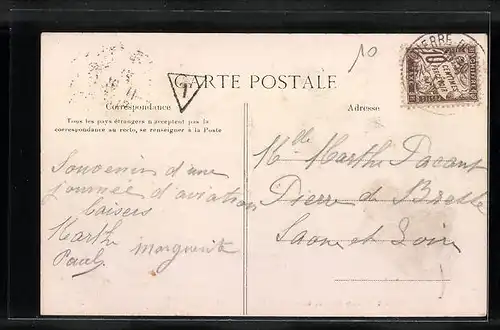 10
PIERRE
T
CARTE POSTALE
Correspondance
Adresse
Tous les pays étrangers n'acceptent pas la
correspondance au recto, se renseigner à la Poste
Souvenir d'une
journée d'aviation
baisers
Marthe
Paul Marguerite
Mlle Marthe Pacaut
Pierre de Bresse
Saone et Loire
10
CENTIMES
À PERCEVOIR